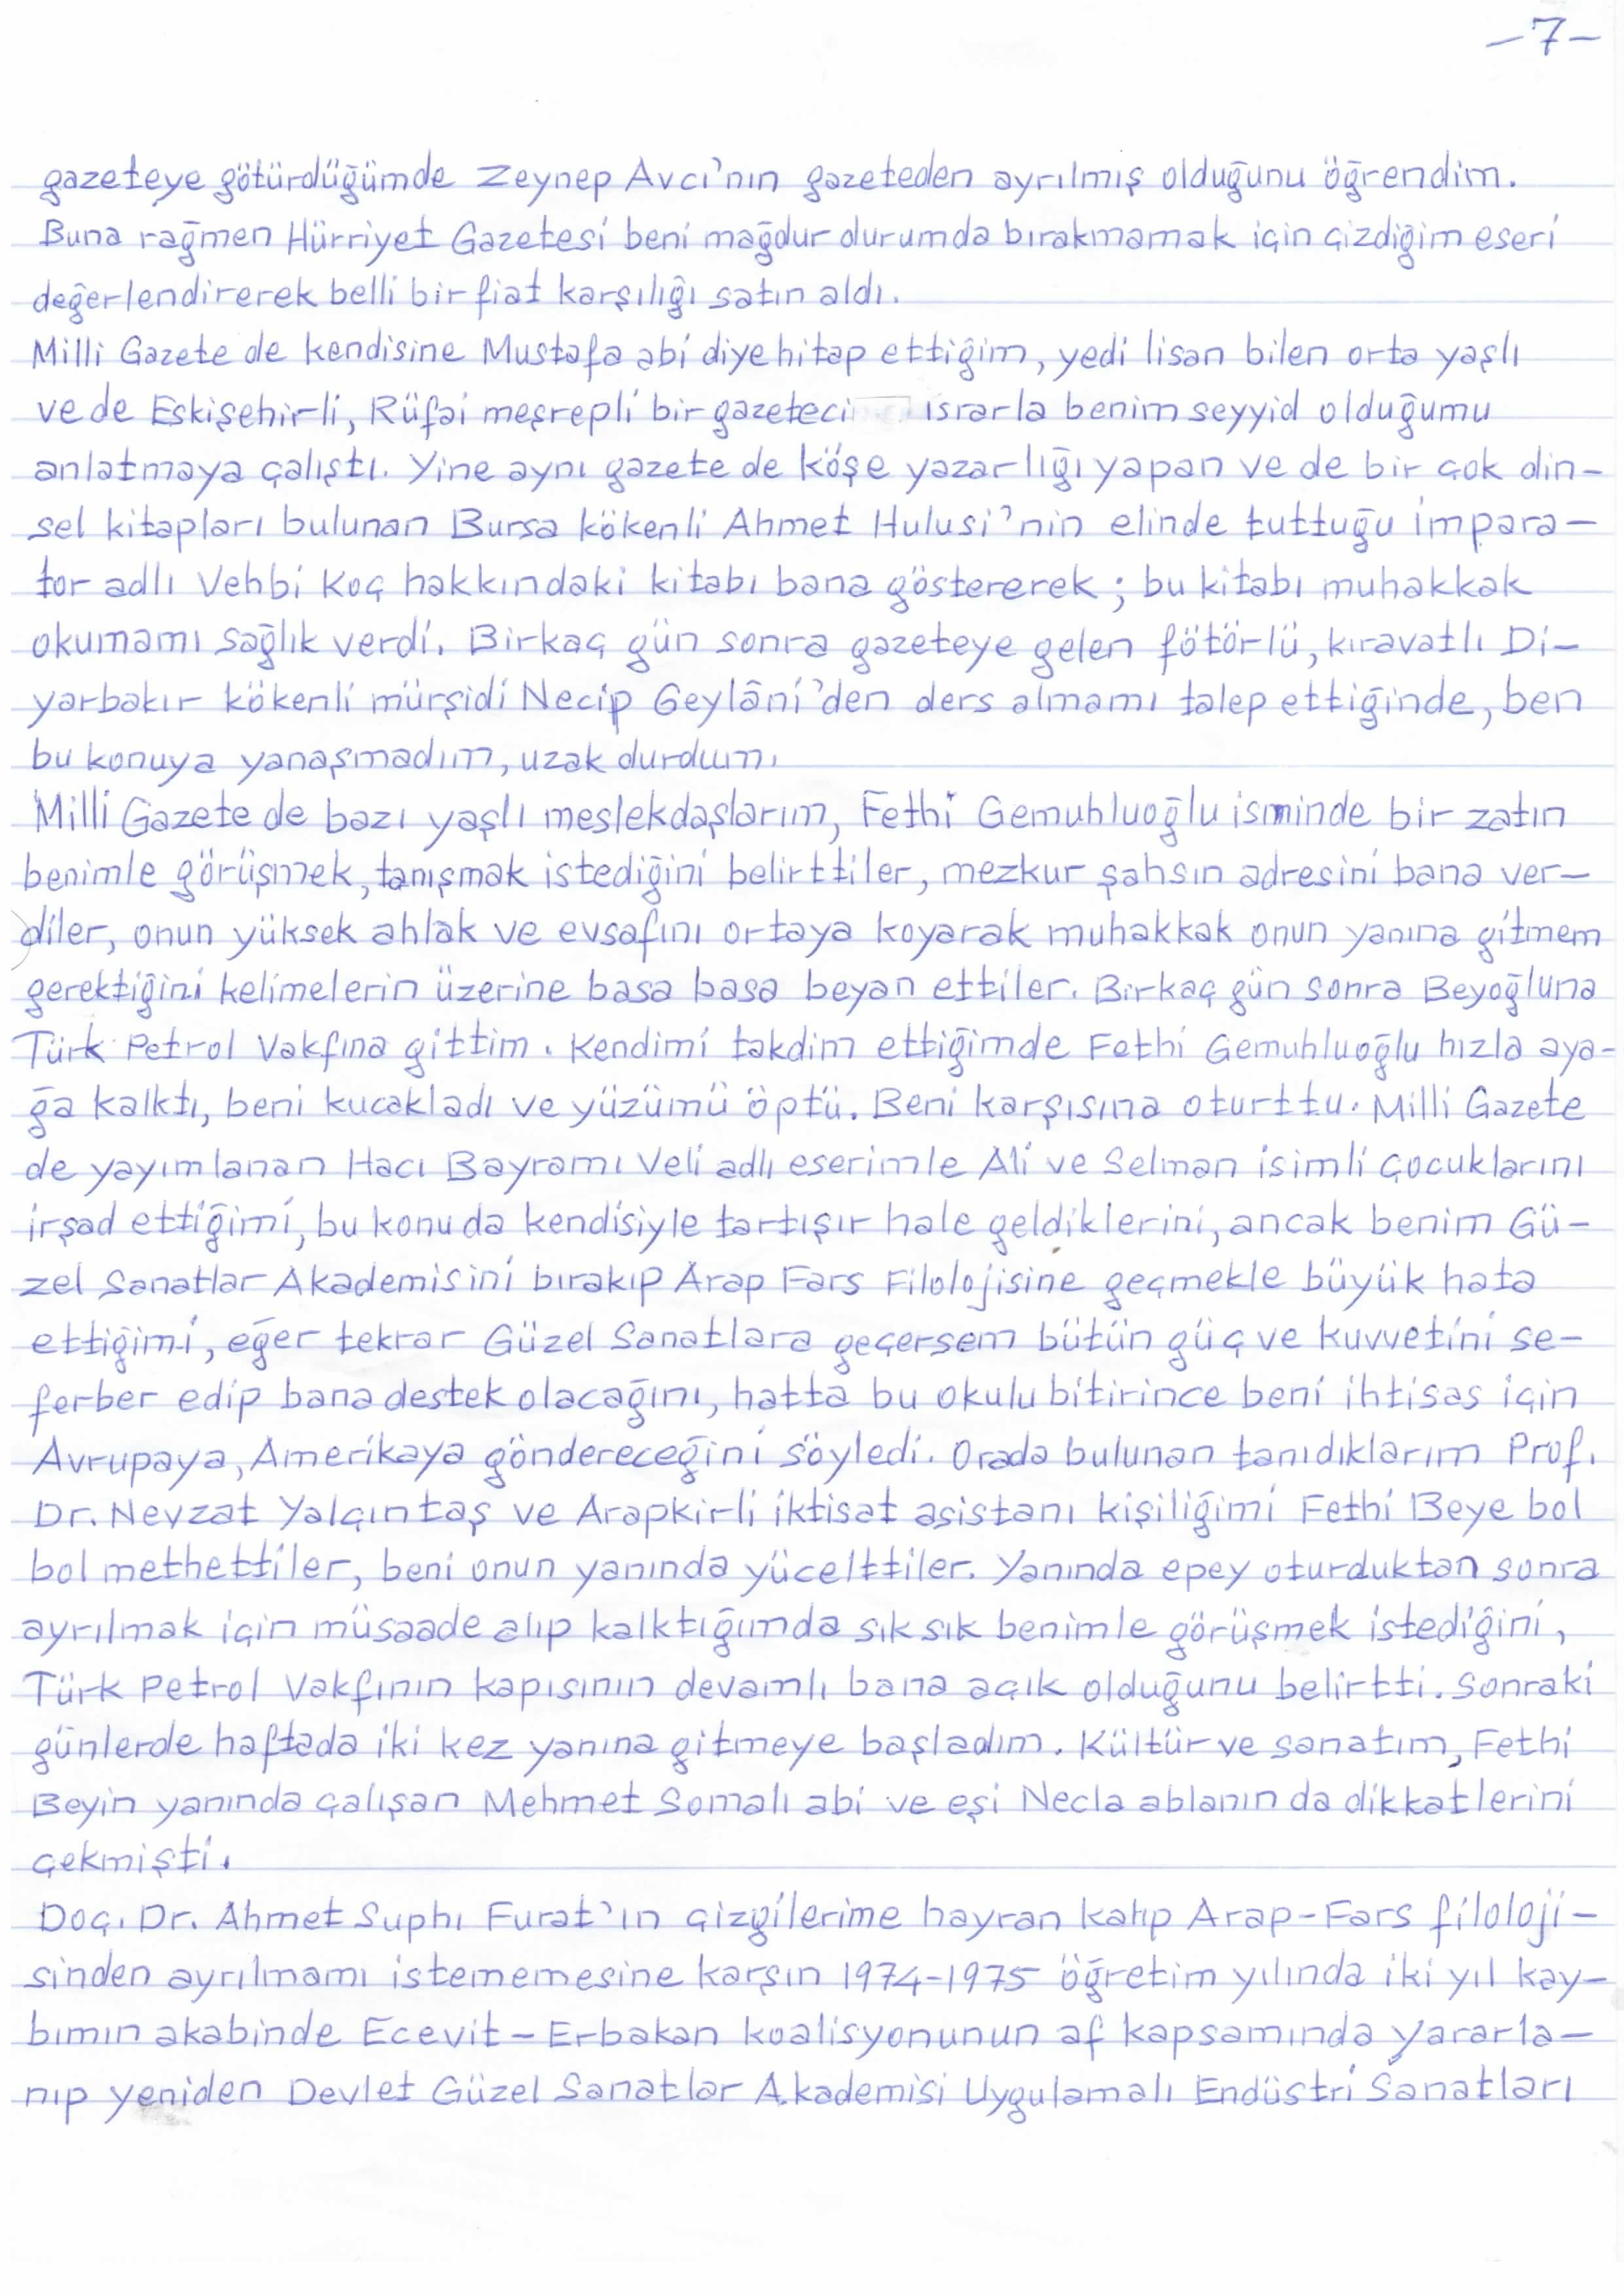 -7-
gazeteye götürdüğümde Zeynep Avcı'nın gazeteden ayrılmış olduğunu öğrendim.
Buna rağmen Hürriyet Gazetesi beni mağdur durumda bırakmamak için çizdiğim eseri
değerlendirerek belli bir fiat karşılığı satın aldı.
Milli Gazete de kendisine Mustafa abi diye hitap ettiğim, yedi lisan bilen orta yaşlı
ve de Eskişehirli, Rüfai meşrepli bir gazeteci ısrarla benim seyyid olduğumu
anlatmaya çalıştı. Yine aynı gazete de köşe yazarlığı yapan ve de bir çok din-
sel kitapları bulunan Bursa kökenli Ahmet Hulusi'nin elinde tuttuğu impara-
tor adlı Vehbi Koç hakkındaki kitabı bana göstererek; bu kitabı muhakkak
okumamı sağlık verdi. Birkaç gün sonra gazeteye gelen fötörlü, kıravatlı Di-
yarbakır kökenli mürşidi Necip Geylâni'den ders almamı talep ettiğinde, ben
bu konuya yanaşmadım, uzak durdum.
Milli Gazete de bazı yaşlı meslekdaşlarım, Fethi Gemuhluoğlu isminde bir zatın
benimle görüşmek, tanışmak istediğini belirttiler, mezkur şahsın adresini bana ver-
diler, onun yüksek ahlak ve evsafını ortaya koyarak muhakkak onun yanına gitmem
gerektiğini kelimelerin üzerine basa basa beyan ettiler. Birkaç gün sonra Beyoğluna
Türk Petrol Vakfına gittim. Kendimi takdim ettiğimde Fethi Gemuhluoğlu hızla aya-
ğa kalktı, beni kucakladı ve yüzümü öptü. Beni karşısına oturttu. Milli Gazete
de yayımlanan Hacı Bayramı Veli adlı eserimle Ali ve Selman isimli çocuklarını
irşad ettiğimi, bu konuda kendisiyle tartışır hale geldiklerini, ancak benim Gü-
zel Sanatlar Akademisini bırakıp Arap Fars Filolojisine geçmekle büyük hata
ettiğimi, eğer tekrar Güzel Sanatlara geçersem bütün güç ve kuvvetini se-
ferber edip bana destek olacağını, hatta bu okulu bitirince beni ihtisas için
Avrupaya, Amerikaya göndereceğini söyledi. Orada bulunan tanıdıklarım Prof.
Dr. Nevzat Yalçıntaş ve Arapkirli iktisat asistanı kişiliğimi Fethi Beye bol
bol methettiler, beni onun yanında yücelttiler. Yanında epey oturduktan sonra
ayrılmak için müsaade alıp kalktığımda sık sık benimle görüşmek istediğini,
Türk Petrol Vakfının kapısının devamlı bana açık olduğunu belirtti. Sonraki
günlerde haftada iki kez yanına gitmeye başladım. Kültür ve sanatım, Fethi
Beyin yanında çalışan Mehmet Somalı abi ve eşi Necla ablanın da dikkatlerini
çekmişti.
Doç. Dr. Ahmet Suphi Furat'ın çizgilerime hayran kalıp Arap-Fars filoloji-
sinden ayrılmamı istememesine karşın 1974-1975 öğretim yılında iki yıl kay-
bımın akabinde Ecevit-Erbakan koalisyonunun af kapsamında yararla-
nıp yeniden Devlet Güzel Sanatlar Akademisi Uygulamalı Endüstri Sanatları